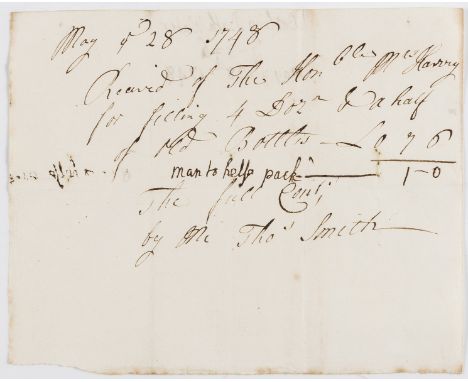 May ye 28 1748
Receivd of The Honble Mrs Harvey
for filling 4 Dozn & a half
of old Bottls — £0 7 6
man to help pack — 1-0
The full Cont;
by Me Thos Smith